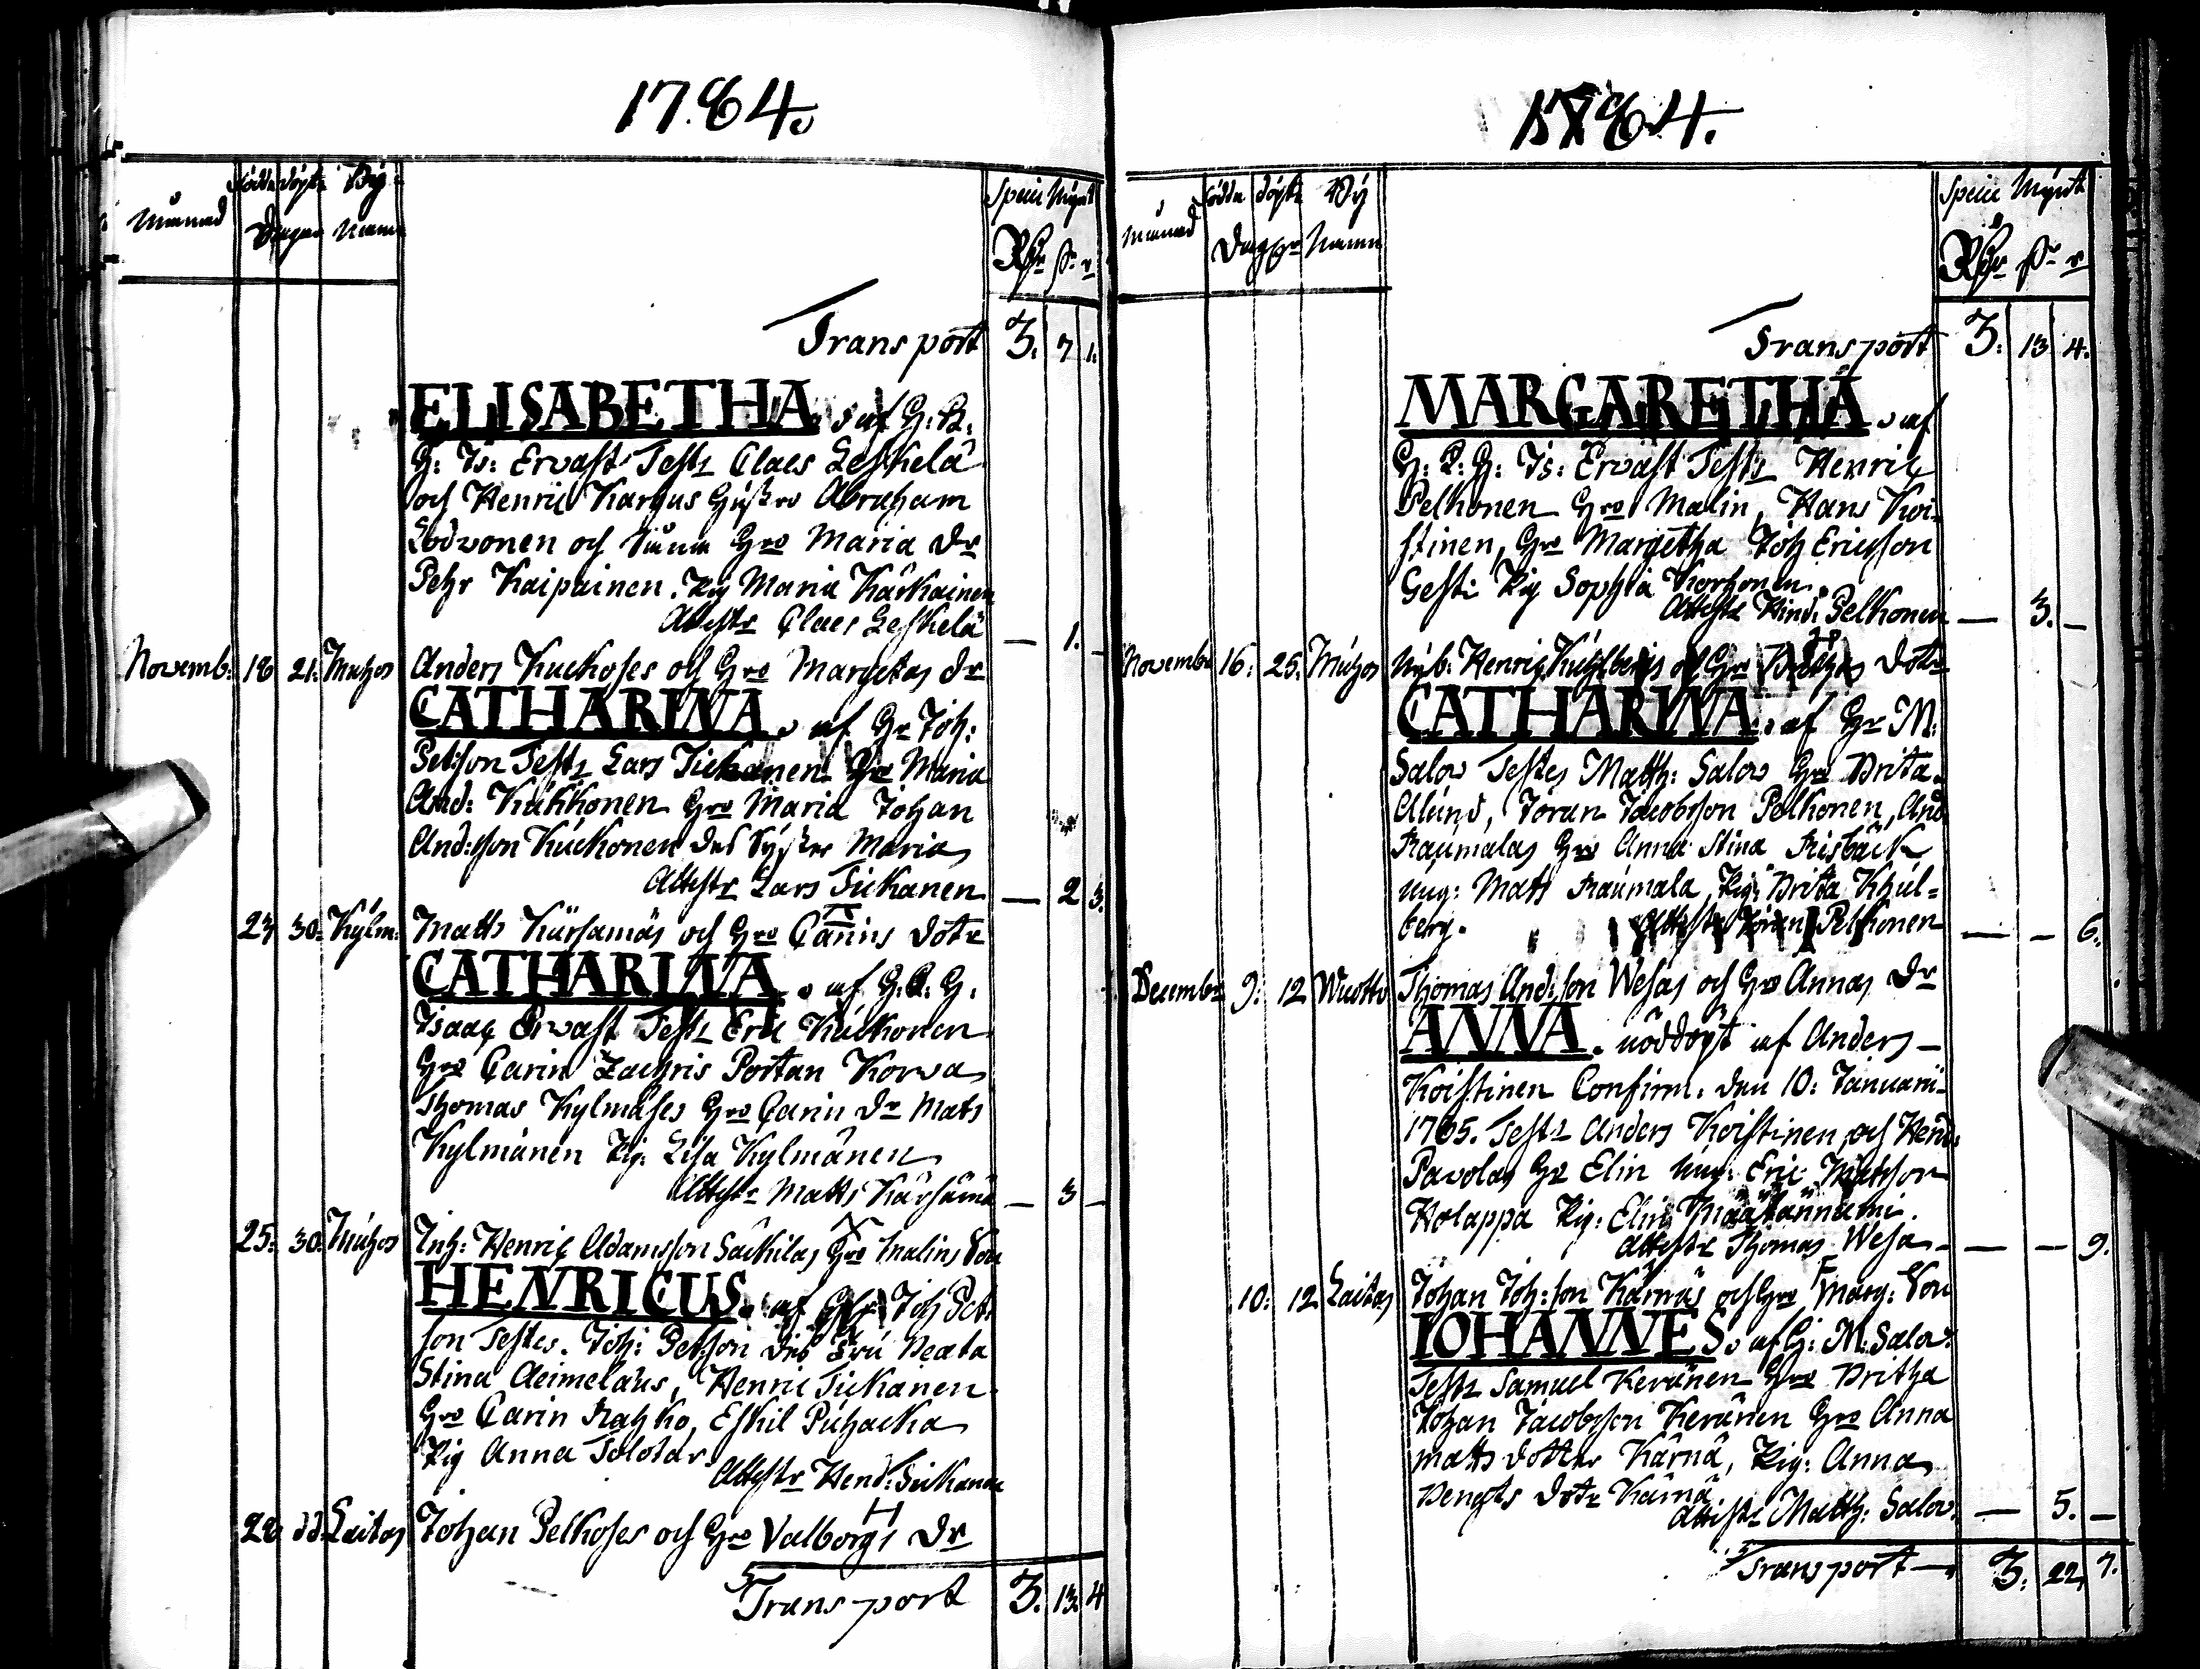 1764.
Månad
födde döpte By
Dagar Namn
Speci Mÿnt
Rdr
Transport 3. 7 1.
ELISABETHA. af G: P.
G: Is: Ervast Test: Claes Leskelä
och Henric Karhus Hustro Abraham
Maria Dr
Pehr Kaipainen. Pig Maria Kärkäinen
Attestr Claes Leskelä — 1. —
Novemb: 18 21. Muhos Anders Kuckoses och Hro Margetas Dr
CATHARINA. af Hr Joh:
Petsson Test: Lars Tickanen Hro Maria
And: Kukkonen Hro Maria Johan
And:sson Kuckonen des Syster Maria
Attestr Lars Tickanen — 2 3.
23 30. Kylm: Matts Kärsämäs och Hro Carins dotr
CATHARINA. af G. P. G.
Isaac Ervast Test: Eric Kuckonen
Hro Carin Zachris Portan Korva
Thomas Kylmäses Hro Carin Dr Mats
Kylmänen Pig: Lisa Kylmänen
Attestr Matts Kärsämä — 3 —
25. 30. Muhos Inh: Henric Adamsson Säckilas Hro Malins Son
HENRICUS. af Joh Pet:
son Testes. Joh: Petsson des Fru Beata
Stina Aeimelæus, Henric Tickanen
Hro Carin Rahko, Eskil Puhacka
Pig Anna Tolotar.
Attestr Hend: Tickanen
28 dd. Laitas Johan Pelkoses och Hro Valborgs Dr
Transport 3. 13. 4
1764.
Månad
födde döpte By
Dagar Namn
Speci Mÿnt
Rdr
Transport 3. 13 4.
MARGARETHA. af
G: P: G: Is: Ervast Test: Henric
Pelkonen Hro Malin, Hans Koi-
stinen, Hro Margetha Joh Ericsson
Gesti Pig Sophia Korhonen.
Attestr Hind: Pelkonen — 3. —
Novembr 16. 25. Muhos Nyb: Henric Kuhlbergs och Hro dotr
CATHARINA. af Hr M:
Salov Testes Matth: Salov Hro Brita
Alund, Jöran Jacobsson Pelkonen, And
Raumalas Hro Anna Stina Frisbäck
Ung: Matts Raumala, Pig: Brita Khul-
berg. Attestr Jöran Pelkonen — — 6.
Decembr 9. 12 Wuotto Thomas And:son Wesas och Hro Annas Dr
ANNA. nöddöpt af Anders —
Koistinen Confirm. den 10: Januari-
1765. Test: Anders Koistinen och Hend:
Pavolas Hr Elin Ung: Eric Matsson
Holappa Pig: Elin Määttänniemi.
Attestr Thomas Wesa — — 9.
10. 12 Laitas Johan Joh:son Kärnäs och Hro Marg: Son
IOHANNES. af H: M: Salov.
Test: Samuel Keränen Hro Britha
Johan Jacobsson Keränen Hro Anna
Matts dotter Kärnä, Pig: Anna
Bengts dotr Kärnä
Attestr Matth: Salov. — 5. —
Transport — 3. 22 7.